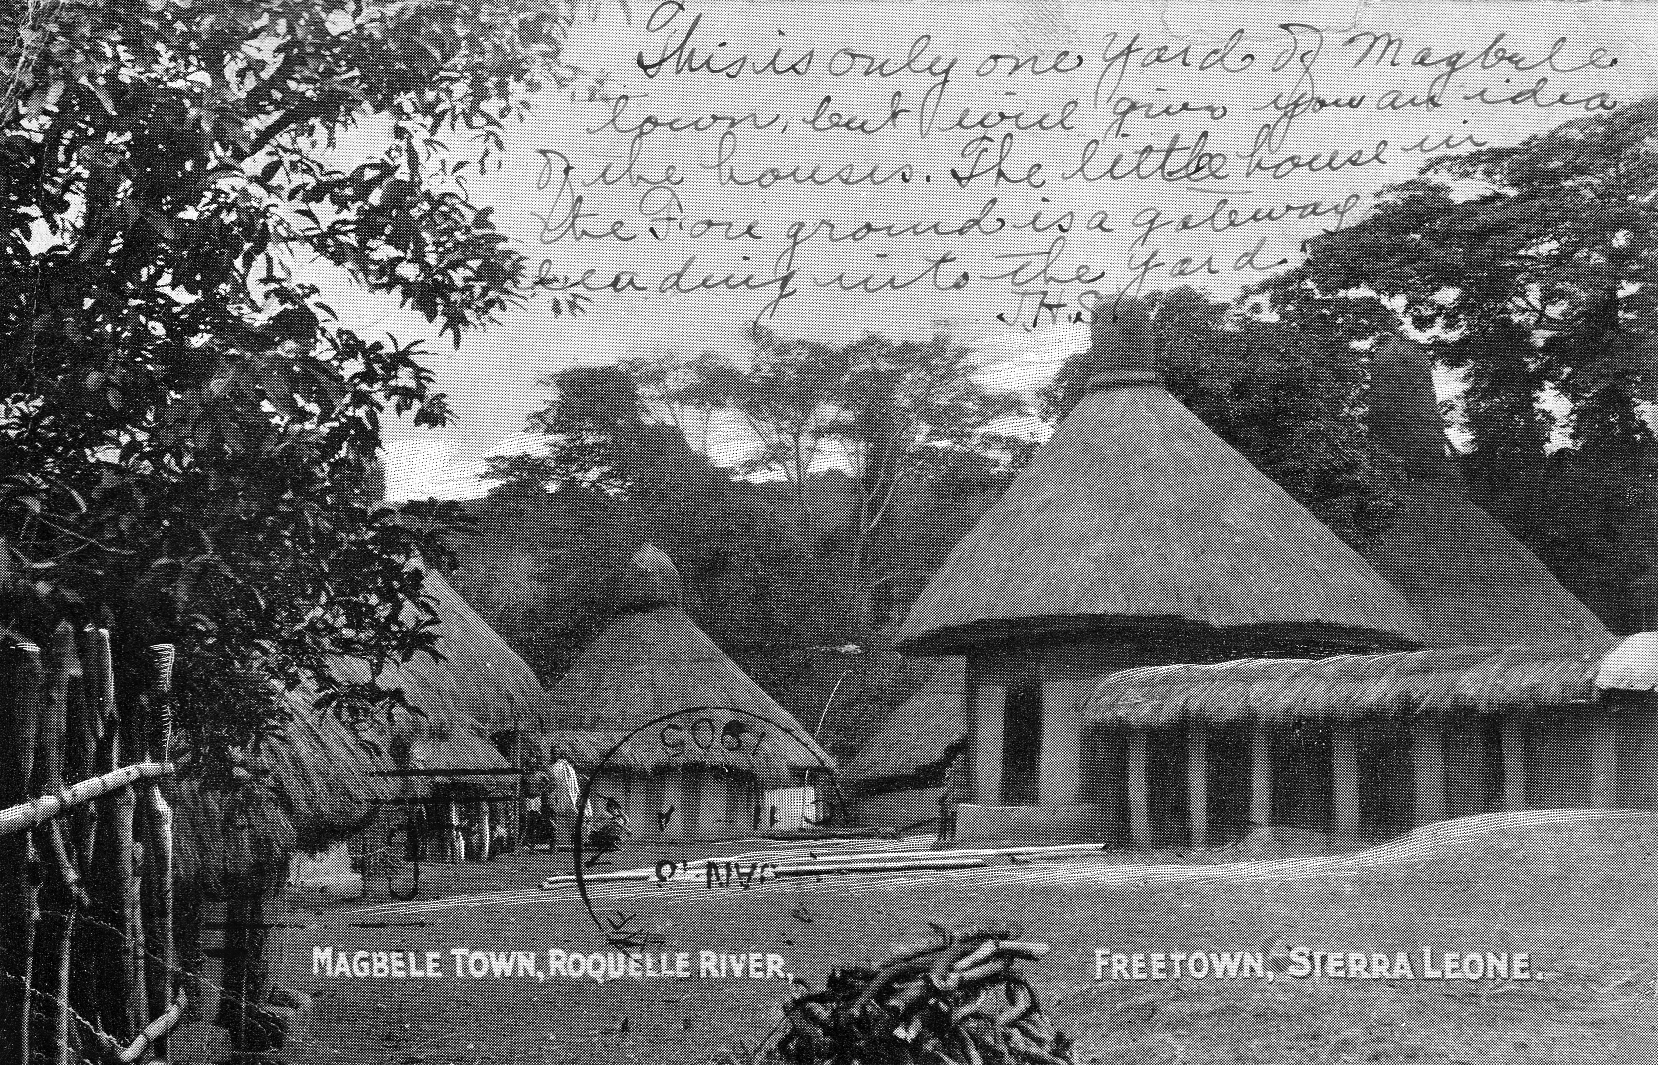 This is only one Yard of Magbele
town, but will give you an idea
of the houses. The little house in
the Fore ground is a gateway
leading into the Yard
J.H.S.
MAGBELE TOWN, ROQUELLE RIVER,
FREETOWN, SIERRA LEONE.